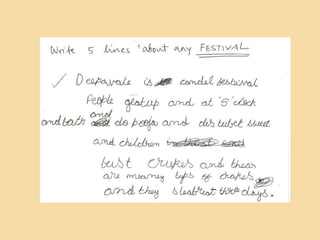 Write 5 lines about any FESTIVAL
Deepavale is candel festival
People glotup and at '5' clock
and bath and do pooja and distubet sweet
and children
bust crukes and thear
are meaney typs of crakes
and they sleatrest three days.